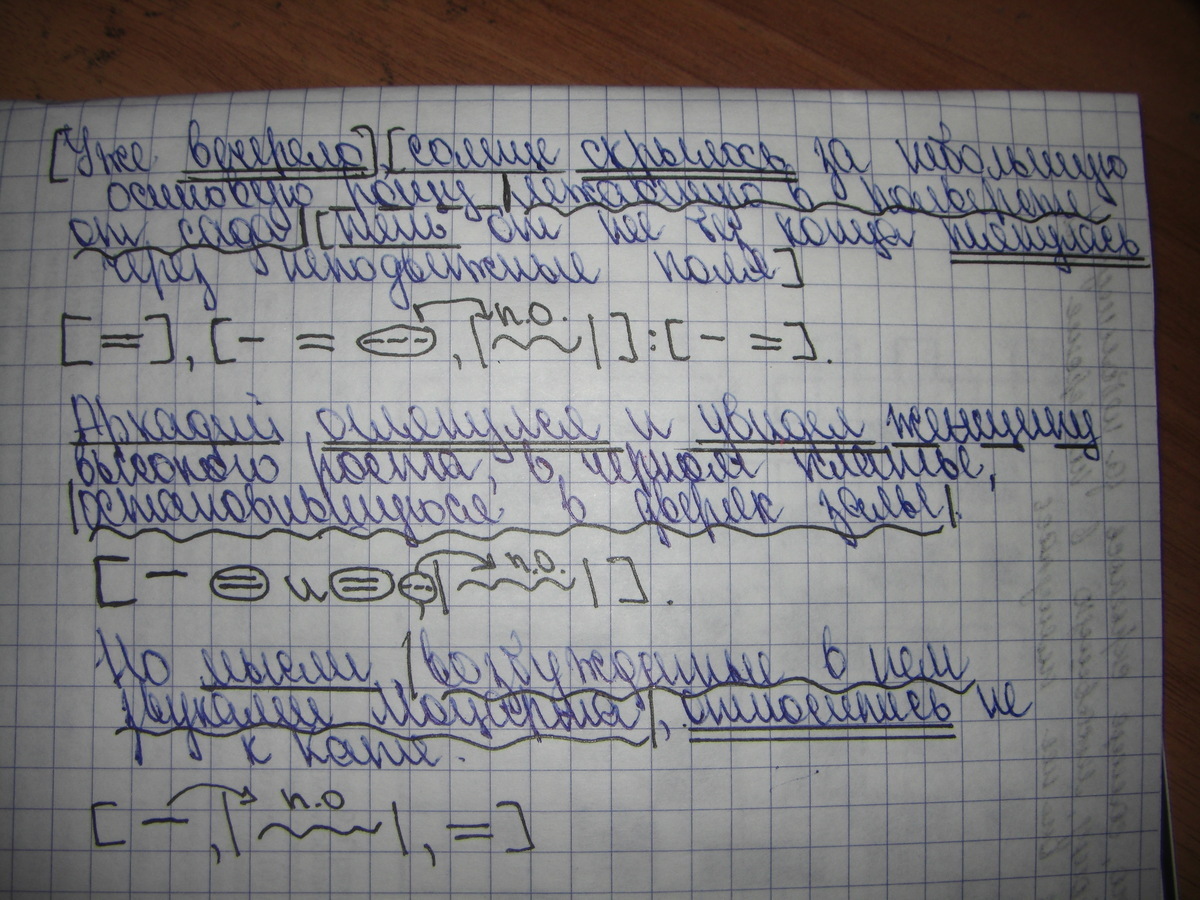 [Уже вечерело], [солнце скрылось за небольшую
осиновую рощу, |лежавшую в полверсте
от сада|] [тень от неё без конца тянулась
через неподвижные поля]
[=], [- = ---, |п.о.|]:[- =].
Аркадий оглянулся и увидел женщину
высокого роста, в чёрном платье,
|остановившуюся в дверях залы|.
[- = и = ---, |п.о.|].
Но мысли, |возбуждённые в нём
звуками Моцарта|, относились не
к Кате.
[-, |п.о|, =]